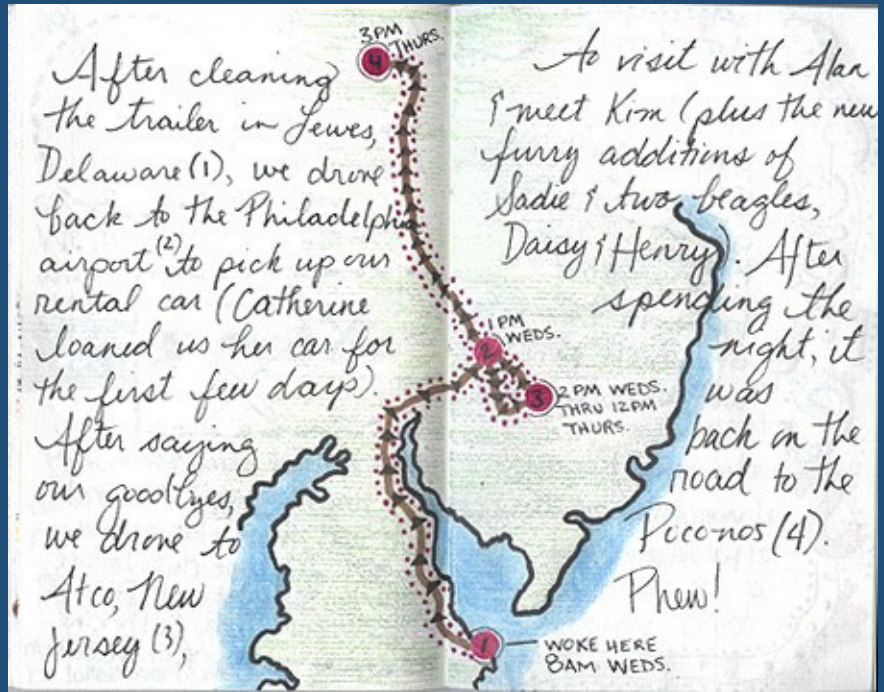 After cleaning
the trailer in Lewes,
Delaware (1), we drove
back to the Philadelphia
airport (2) to pick up our
rental car (Catherine
loaned us her car for
the first few days).
After saying
our goodbyes,
we drove to
Atco, New
Jersey (3),
to visit with Alan
& meet Kim (plus the new
furry additions of
Sadie & two beagles,
Daisy & Henry). After
spending the
night, it
was
back on the
road to the
Poconos (4).
Phew!
3PM
THURS.
4
1PM
WEDS.
2
3
2PM WEDS.
THRU 12PM
THURS.
1
WOKE HERE
8AM WEDS.